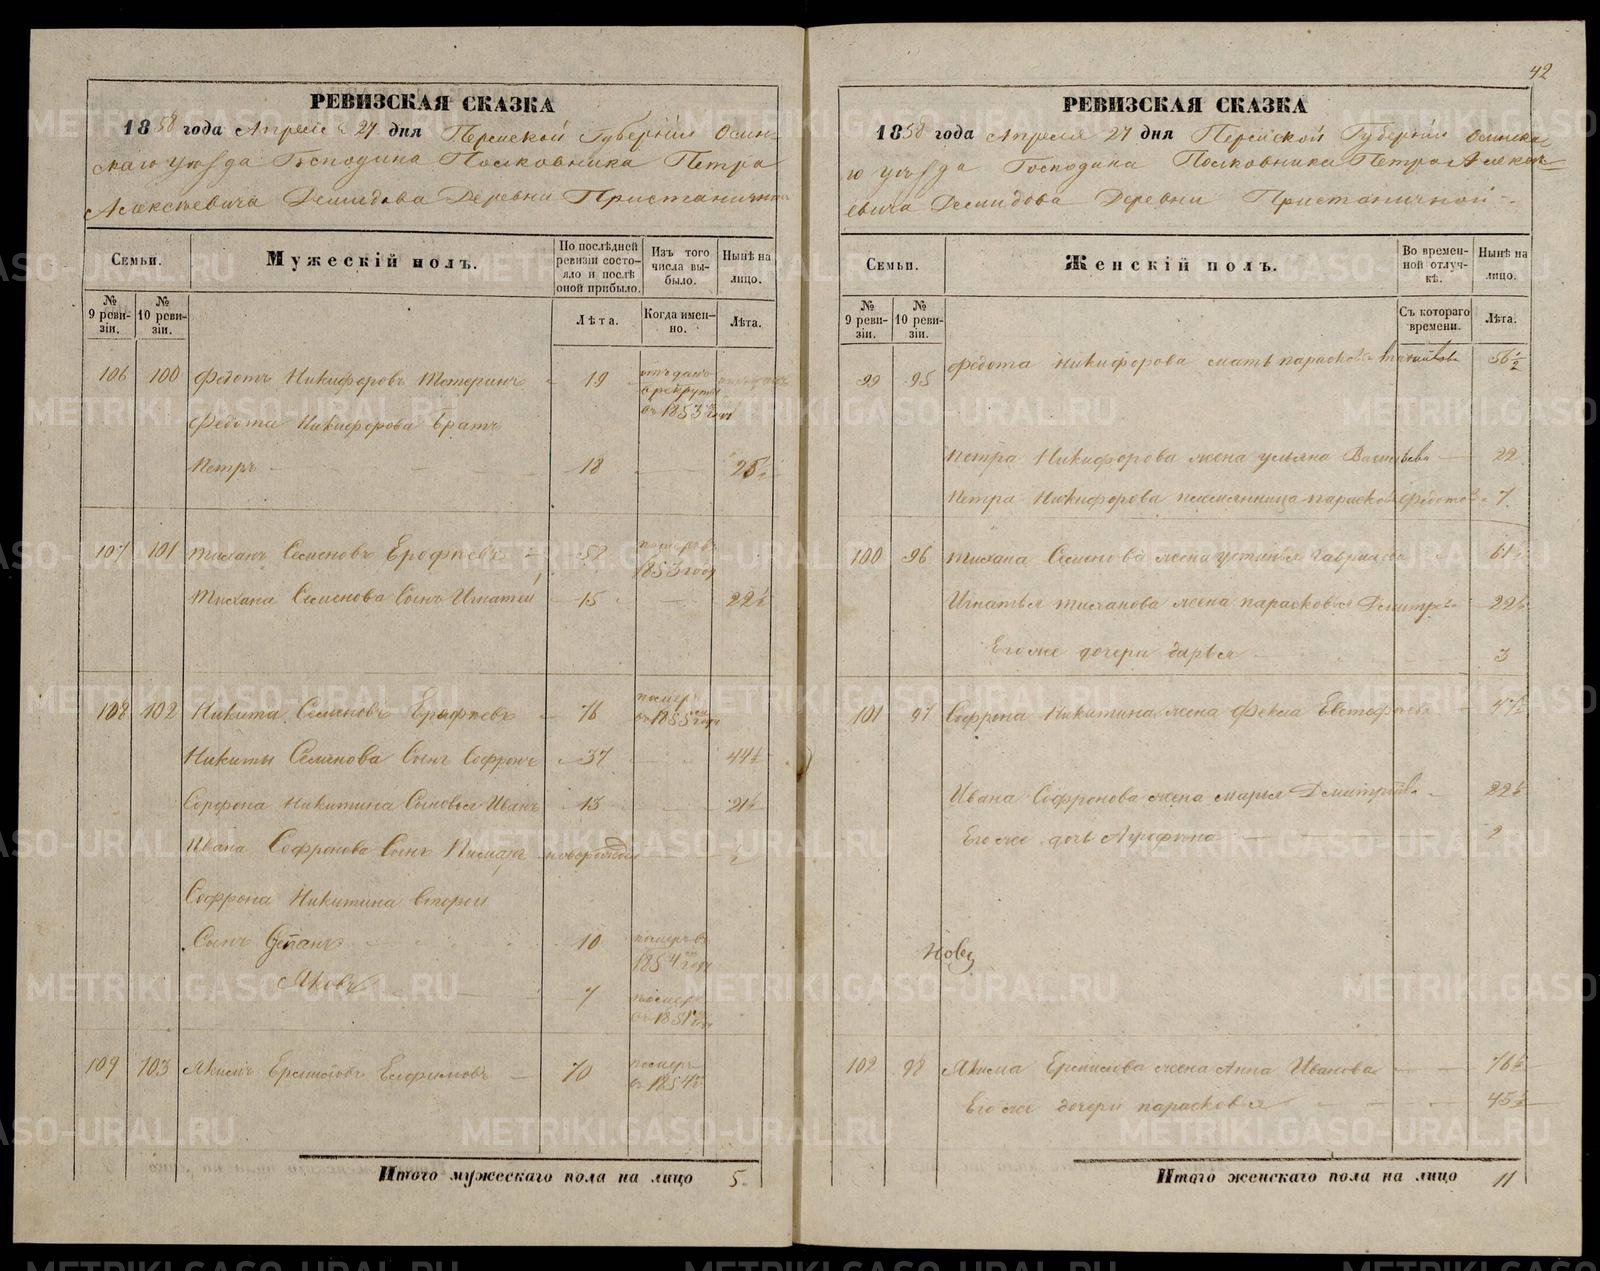 РЕВИЗСКАЯ СКАЗКА
1858 года Апреля 27 дня Пермской Губернiи Осин-
скаго уѣзда Господина Полковника Петра
Алексѣевича Демидова Деревни Пристаничной
Семьи.
Мужескiй полъ.
По послѣдней ревизiи состо-
яло и послѣ
оной прибыло.
Изъ того
числа вы-
было.
Нынѣ на
лицо.
№ 9 реви-
зiи.
№ 10 реви-
зiи.
Лѣта.
Когда имен-
но.
Лѣта.
106 100 Федотъ Никифоровъ 19 отъданъ
в рекруты
въ 1853 году
Федота Никифорова братъ
Петръ 18 25½
107 101 Тиханъ Семеновъ Ерофѣевъ 52 померъ въ
1853 году
Тихана Семенова Сынъ Игнатей 15 22½
108 102 Никита Семеновъ Ерофѣевъ 76 померъ
въ 1855 году
Никиты Семенова Сынъ Софронъ 37 44½
Софрона Никитина Сыновья Иванъ 13 21½
Ивана Софронова Сынъ новорожден ½
Софрона Никитина второй
Сынъ Степанъ 10 померъ въ
1854 году
Яковъ 7 померъ
въ 1851 году
109 103 Якимъ Ефимовъ 70 померъ
въ 1854
Итого мужескаго пола на лицо 5.
42
РЕВИЗСКАЯ СКАЗКА
1858 года Апреля 27 дня Пермской Губернiи Осинска-
го уѣзда Господина Полковника Петра Алексѣ-
евича Демидова Деревни Пристаничной
Семьи.
Женскiй полъ.
Во времен-
ной отлуч-
кѣ.
Нынѣ на
лицо.
№ 9 реви-
зiи.
№ 10 реви-
зiи.
Съ котораго
времени.
Лѣта.
99 95 Федота Никифорова мать парасковья 56½
Петра Никифорова жена ульяна Васильева 22
Петра Никифорова племянница парасковья Федотова 7
100 96 Тихана Семенова жена устинья Гаврилова 61½
Игнатья тиханова жена парасковья Дмитрева 22½
Его же дочери дарья 3
101 97 Софрона Никитина жена Фекла Евстафьева 47½
Ивана Софронова жена марья Дмитриева 22½
Его же дочь Агрофина 2
102 98 Якима жена Анна Иванова 76½
Его же дочери парасковья 45½
Итого женскаго пола на лицо 11
METRIKI.GASO-URAL.RU